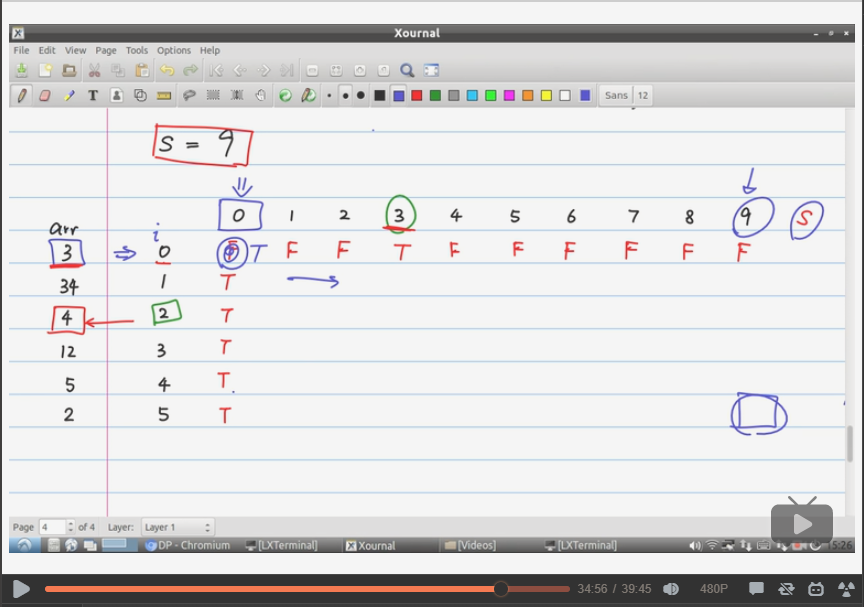 Xournal
File Edit View Page Tools Options Help
Sans 12
S = 9
arr i 0 1 2 3 4 5 6 7 8 9 S
3 0 T F F T F F F F F F
34 1 T
4 2 T
12 3 T
5 4 T
2 5 T
Page 4 of 4 Layer: Layer 1
DP - Chromium [LXTerminal] Xournal [Videos] [LXTerminal] 15:26
34:56 / 39:45 480P